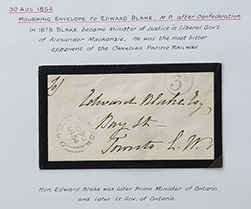 30 AUG 1854
MOURNING ENVELOPE TO EDWARD BLAKE, M.P. AFTER CONFEDERATION
IN 1875 BLAKE BECAME MINISTER OF JUSTICE IN LIBERAL GOVT.
OF ALEXANDER MACKENZIE. HE WAS THE MOST BITTER
OPPONENT OF THE CANADIAN PACIFIC RAILWAY.
3D
Edward Blake Esq,
Bay St
Toronto C. W.
HON. EDWARD BLAKE WAS LATER PRIME MINISTER OF ONTARIO
AND LATER LT. GOV. OF ONTARIO.